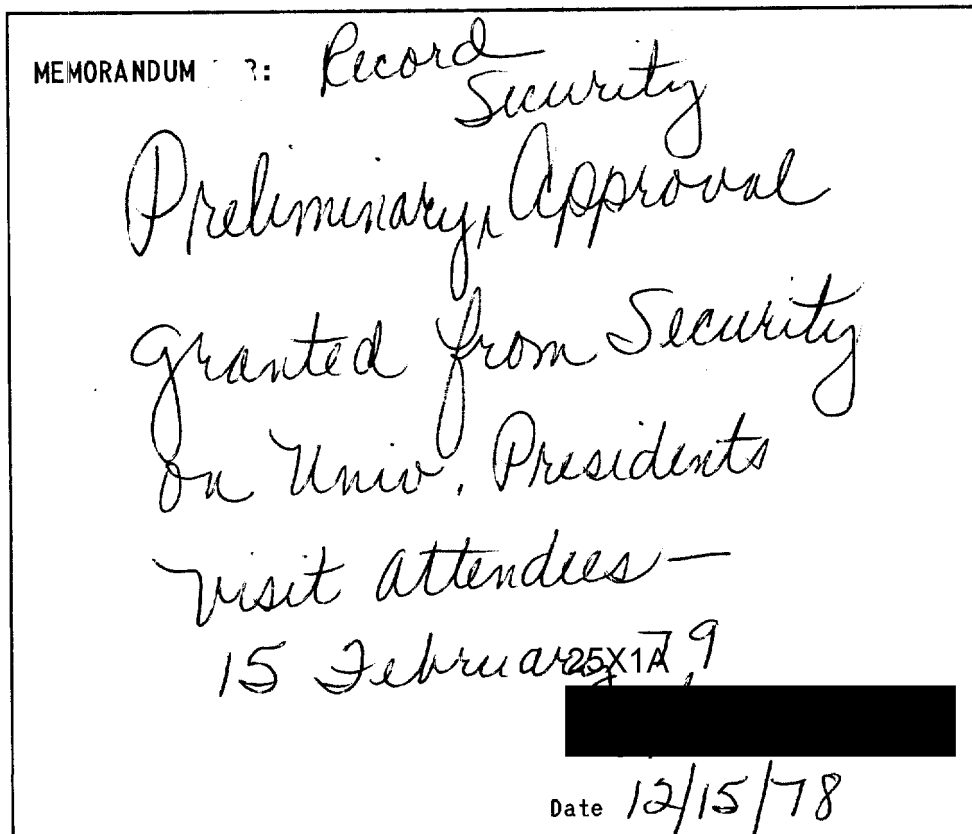 MEMORANDUM R: Record
Security
Preliminary, Approval
granted from Security
on Univ. Presidents
Visit attendees —
15 February 79
25X1A
Date 12/15/78